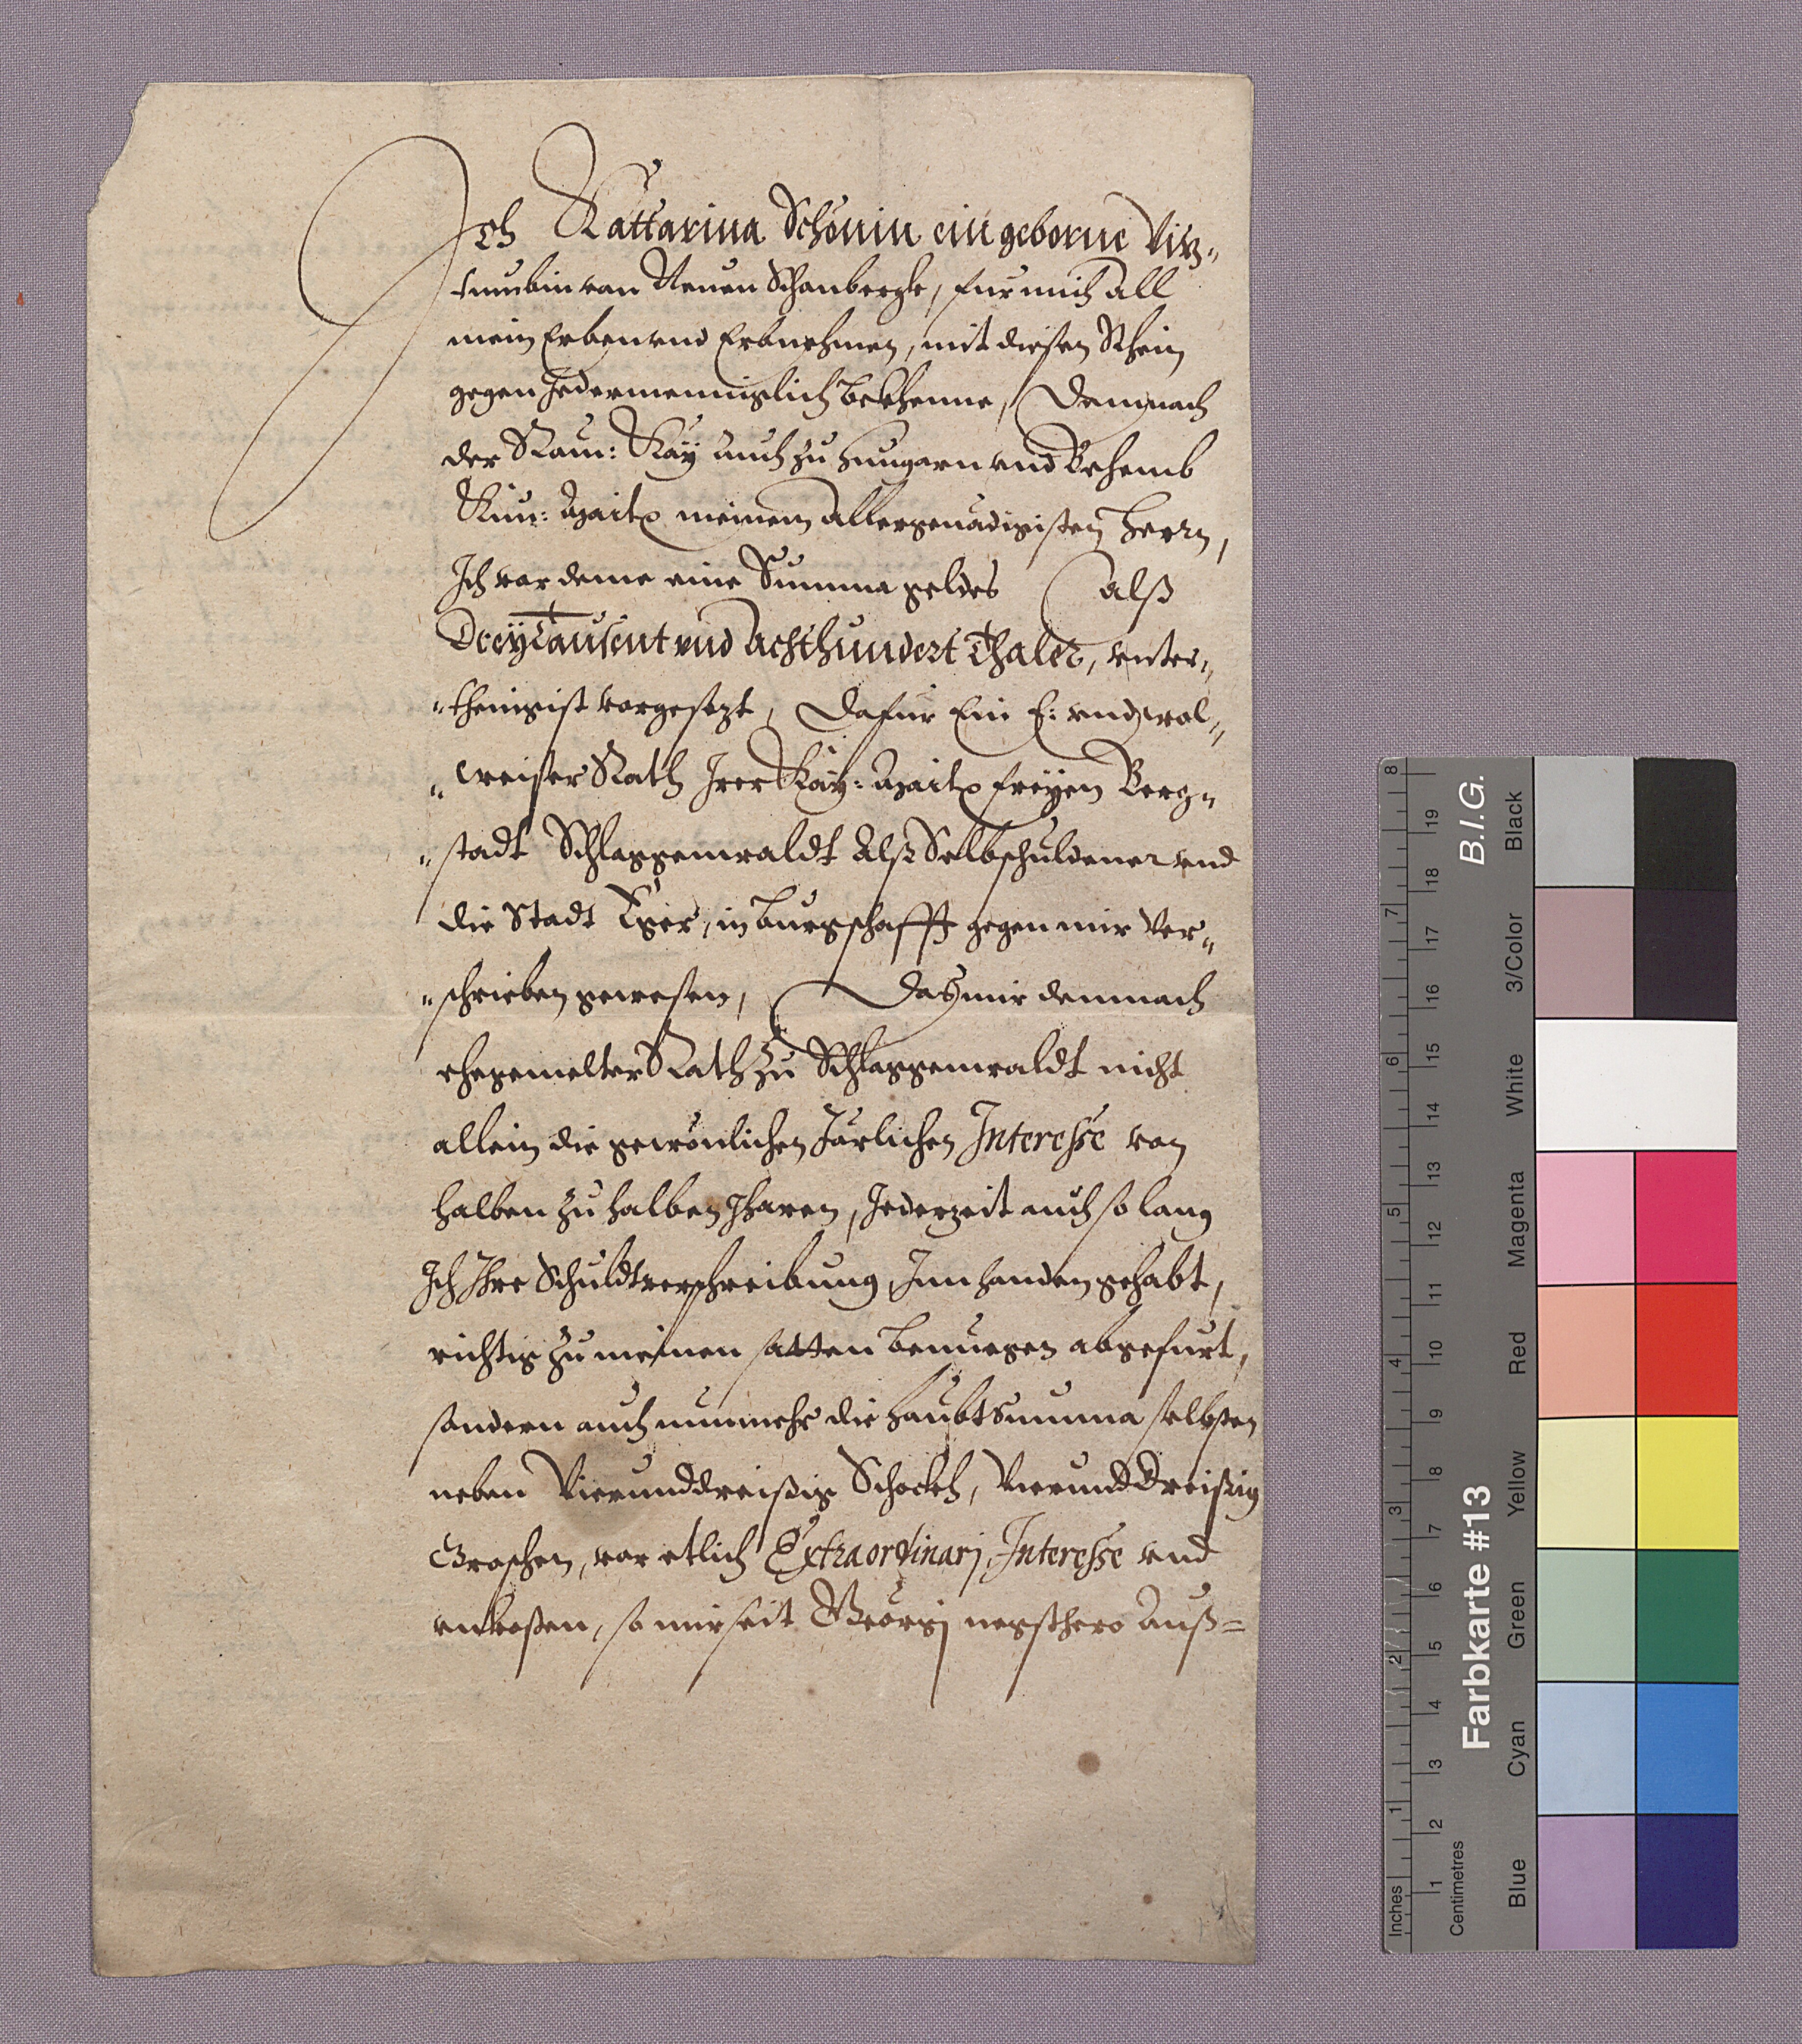 Ich Kattarina Schönin ein geborne Vitz-
tumbin von Neuen Schonbergk, fur mich all
mein Erben vnd Erbnehmen, mit diesen Schein
gegen Jedermenniglich bekhenne, Demnach
der Rom: Kay auch zu Hungarn vnd Behemb
Kün: Maitt meinem allergenädigisten Herrn,
Ich vor deme eine Summa geldes alß
Dreÿtausent vnd Achthundert Thaler, vnter-
-thenigist vorgesezt, Dafur Ein E: vnd wol-
-weiser Rath Irer Kaÿ: Maitt freÿen Berg-
-stadt Schlaggenwaldt Alß Selbschuldener vnd
die Stadt Eger, in burgschafft gegen mir Ver-
-schrieben gewesen, Das mir demnach
ehegemelter Rath zu Schlaggenwaldt nicht
allein die gewönlichen Järlichen Interesse von
halben zu halben Jharen, Jederzeit auch so lang
Ich Ihre Schuldtverschreibung, Inn handen gehabt,
richtig zu meinen satten benuegen abgefurt,
sondern auch nunmehr die Haubtsumma selbsten
neben Vierunddreißig Schockh, Vierunddreißig
Groschen, vor etlich Extraordinarj Interesse vnd
vnkosten, so mir seit Georgj negsthero Auß=
8
7
6
5
4
3
2
1
Inches
19
18
17
16
15
14
13
12
11
10
9
8
7
6
5
4
3
2
1
Centimetres
B.I.G.
Farbkarte #13
Black
3/Color
White
Magenta
Red
Yellow
Green
Cyan
Blue